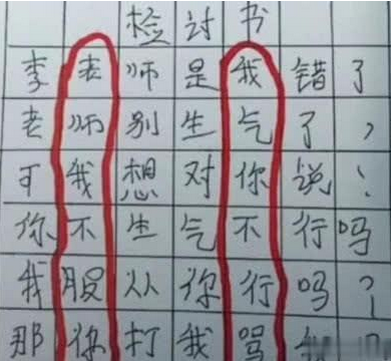 检讨书
李老师是我错了
老师别生气了，
可我想对你说：
你不生气不行吗
我服从你行吗？
那你打我骂